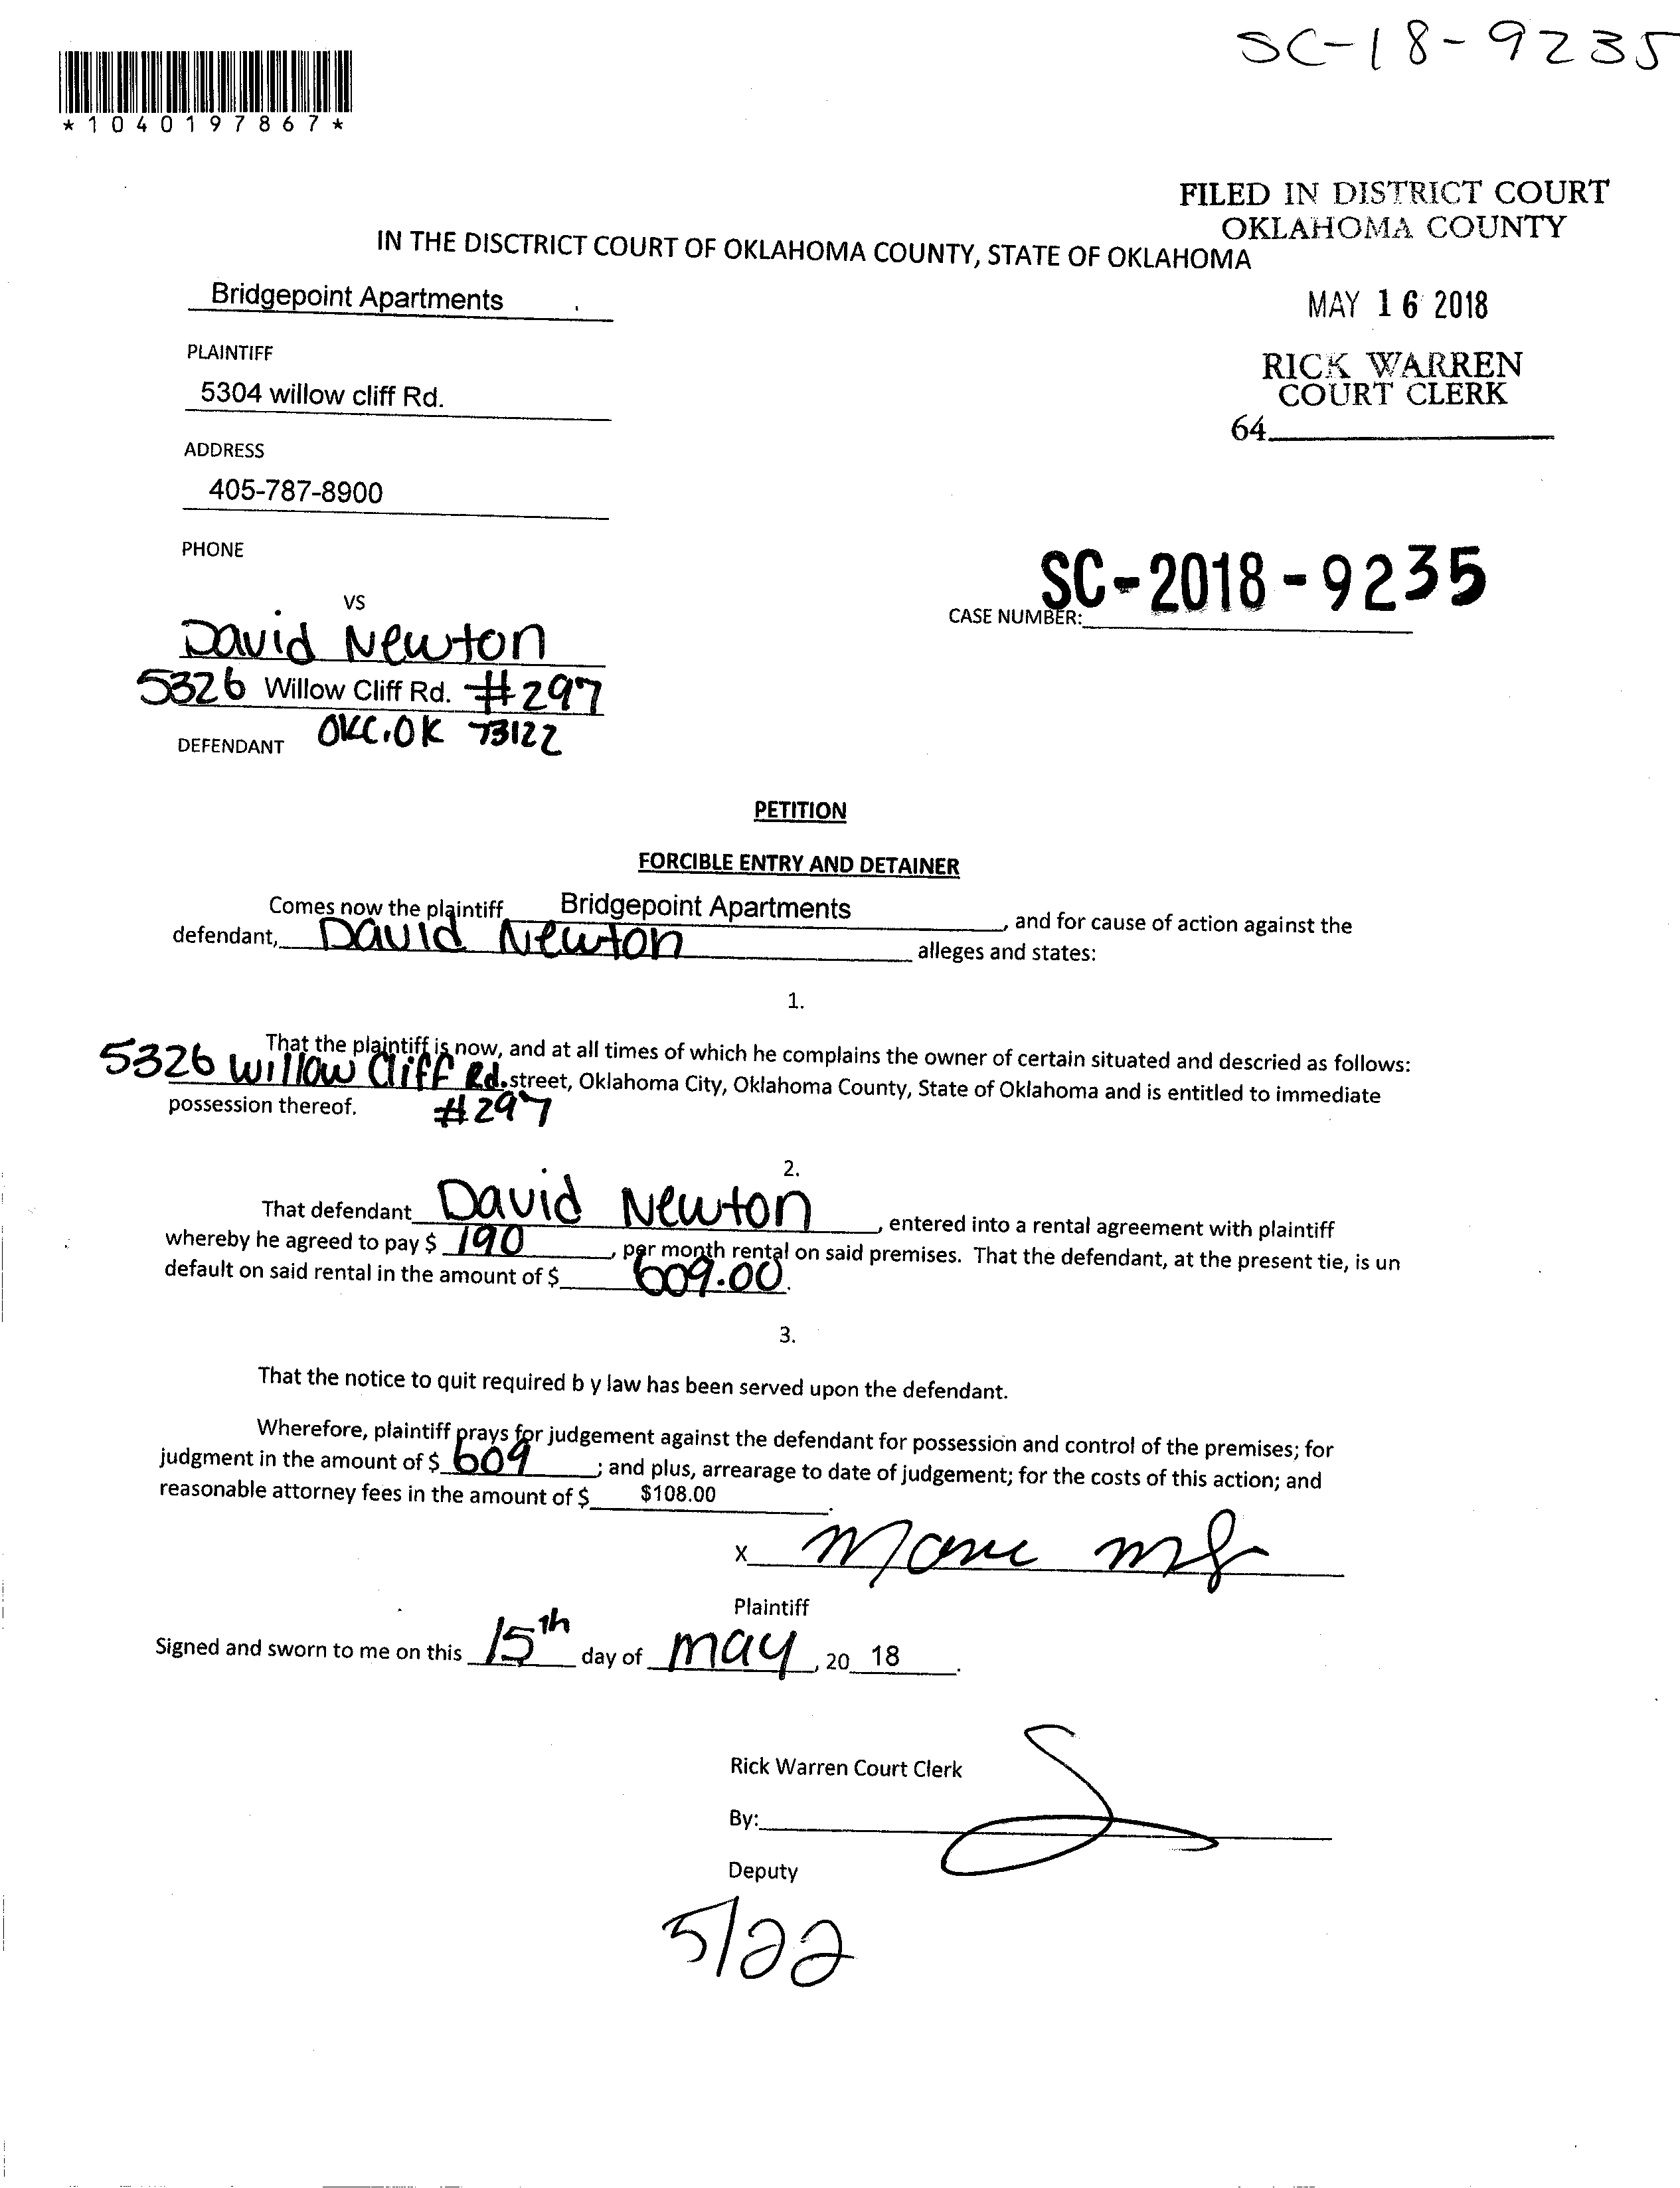 SC-18-9235
*1040197867*
FILED IN DISTRICT COURT
OKLAHOMA COUNTY
IN THE DISCTRICT COURT OF OKLAHOMA COUNTY, STATE OF OKLAHOMA
Bridgepoint Apartments
MAY 16 2018
PLAINTIFF
RICK WARREN
COURT CLERK
5304 willow cliff Rd.
64
ADDRESS
405-787-8900
PHONE
SC-2018-9235
CASE NUMBER:
VS
David Newton
5326 Willow Cliff Rd. #297
OKC.OK 73122
DEFENDANT
PETITION
FORCIBLE ENTRY AND DETAINER
Comes now the plaintiff Bridgepoint Apartments, and for cause of action against the
defendant, David Newton alleges and states:
1.
That the plaintiff is now, and at all times of which he complains the owner of certain situated and descried as follows:
5326 Willow Cliff Rd. street, Oklahoma City, Oklahoma County, State of Oklahoma and is entitled to immediate
possession thereof. #297
2.
That defendant David Newton, entered into a rental agreement with plaintiff
whereby he agreed to pay $ 190, per month rental on said premises. That the defendant, at the present tie, is un
default on said rental in the amount of $ 609.00.
3.
That the notice to quit required b y law has been served upon the defendant.
Wherefore, plaintiff prays for judgement against the defendant for possession and control of the premises; for
judgment in the amount of $ 609; and plus, arrearage to date of judgement; for the costs of this action; and
reasonable attorney fees in the amount of $ $108.00.
X
Plaintiff
Signed and sworn to me on this 15th day of may, 20 18.
Rick Warren Court Clerk
By:
Deputy
5/22